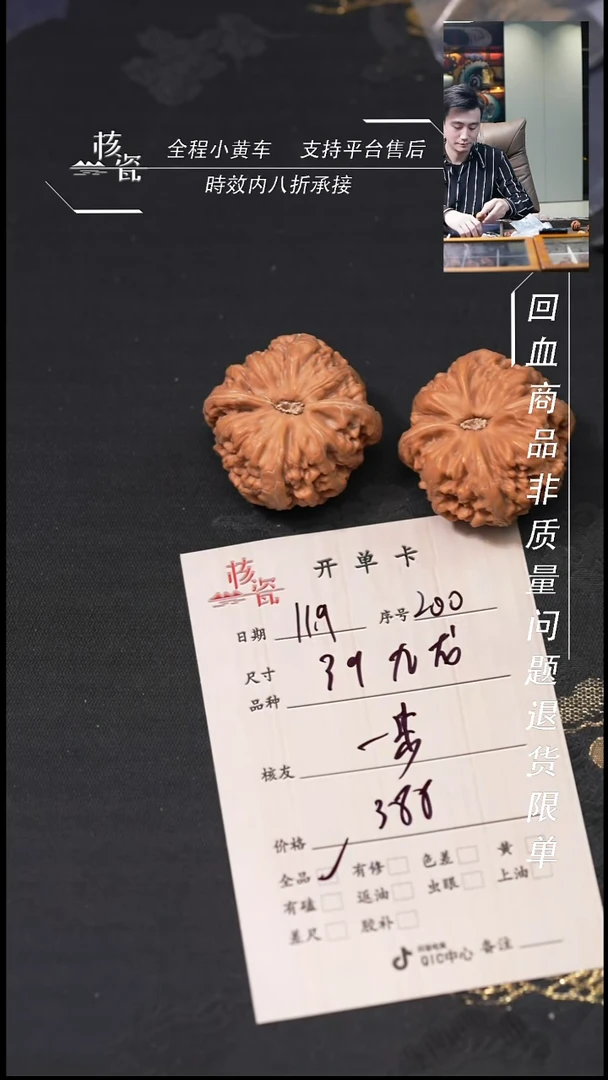 核瓷
全程小黄车 支持平台售后
時效内八折承接
回血商品非质量问题退货限单
核瓷
开单卡
日期 11.9 序号 200
尺寸 39 九龙
品种
一步
核友
388
价格
全品 有修 色差 黄
有磕 返油 虫眼 上油
差尺 胶补
抖音电商
QIC中心 备注